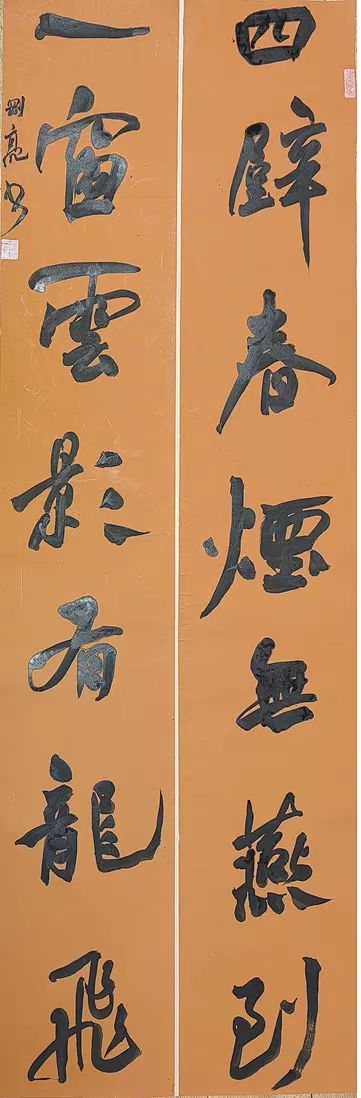 四壁春煙無燕到
一窗雲影有龍飛